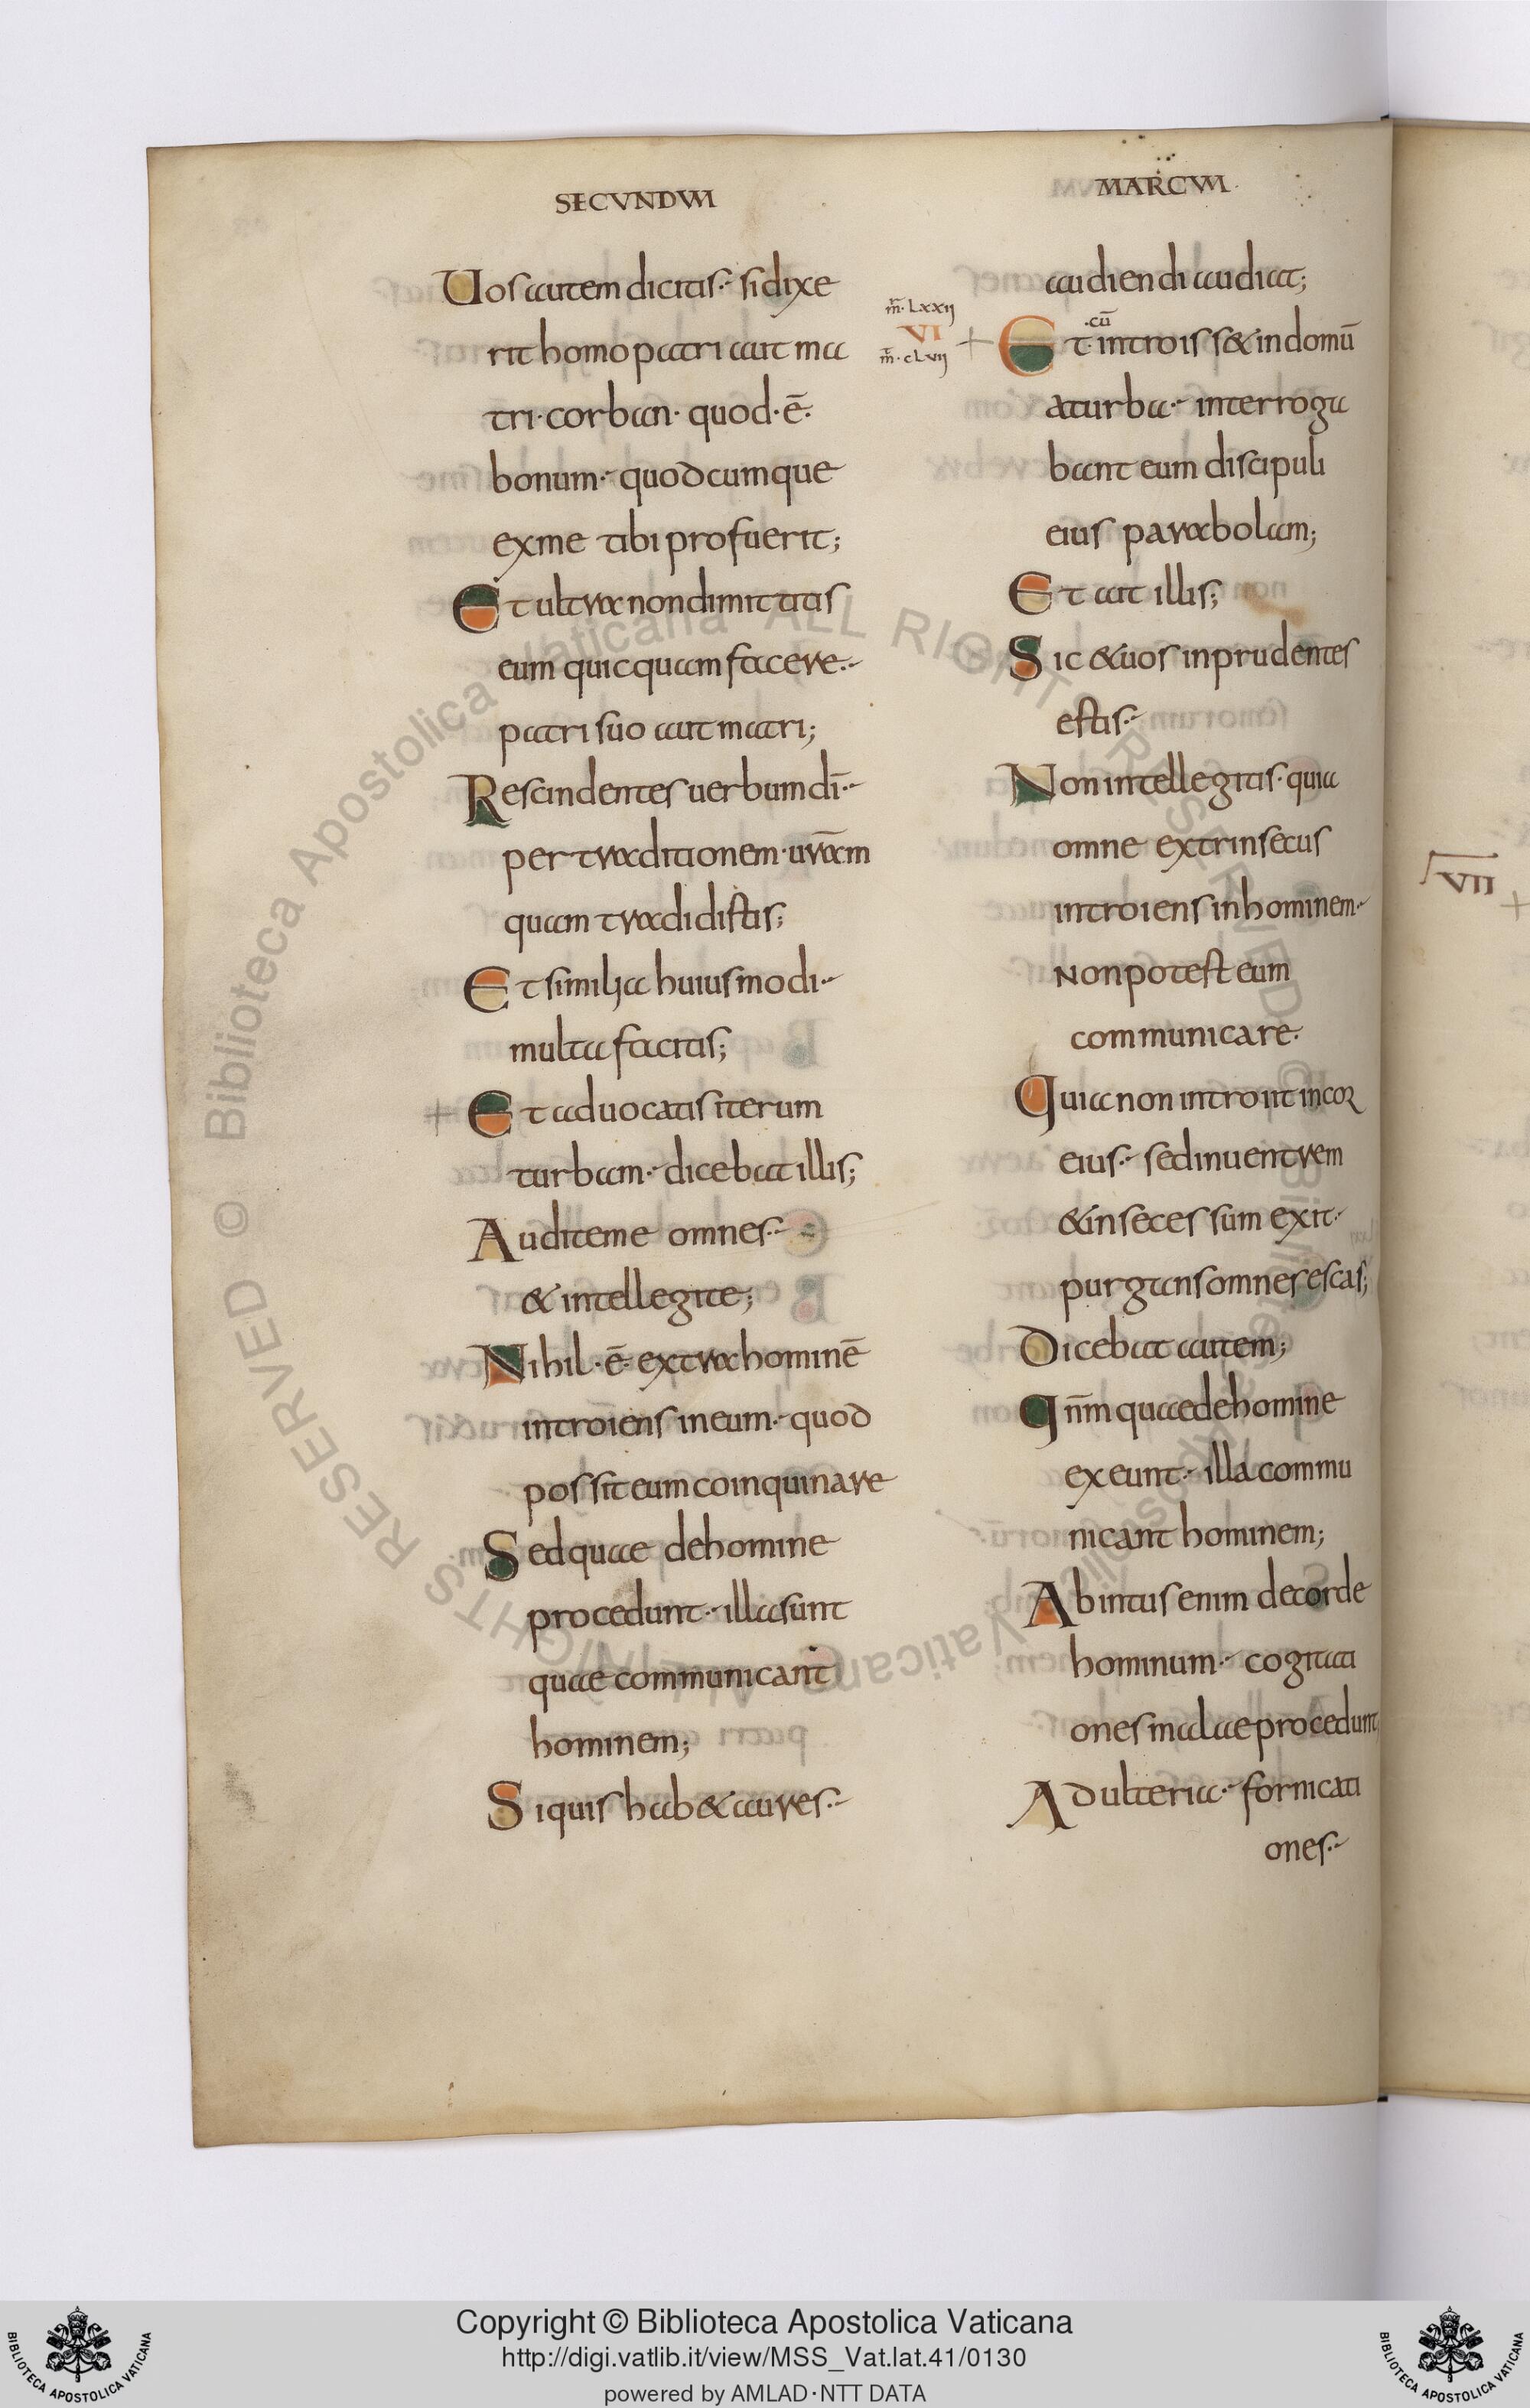 SECVNDVM
Uos autem dicitis· si dixe
rit homo patri aut ma
tri· corban· quod· ē·
bonum· quodcumque
ex me tibi profuerit;
Et ultra non dimittitis
eum quicquam facere·
patri suo aut matri;
Rescindentes uerbum dī·
per traditionem· urām
quam tradidistis;
Et similia huiusmodi·
multa facitis;
+ Et aduocatis iterum
turbam· dicebat illis;
Audite me omnes·
& intellegite;
Nihil· ē· extra hominē
introiens in eum· quod
possit eum coinquinare
Sed quae de homine
procedunt· illa sunt
quae communicant
hominem;
Si quis hab& aures·
MARCVM
audiendi audiat;
m̄· Lxxij
VI
m̄· cLvij
+ Et· introiss& in domū
·cū
a turba· interroga
bant eum discipuli
eius parabolam;
Et ait illis;
Sic & uos inprudentes
estis·
Non intellegitis· quia
omne extrinsecus
introiens in hominem·
non potest eum
communicare·
Quia non introit in cor
eius· sed in uentrem
& in secessum exit·
purgans omnes escas;
Dicebat autem;
Qn̄m quae de homine
exeunt· illa commu
nicant hominem;
Ab intus enim de corde
hominum· cogitati
ones malae procedunt
Adulteria· fornicati
ones·
VII
+
Biblioteca Apostolica Vaticana ALL RIGHTS RESERVED ©
Copyright © Biblioteca Apostolica Vaticana
http://digi.vatlib.it/view/MSS_Vat.lat.41/0130
powered by AMLAD·NTT DATA
BIBLIOTECA APOSTOLICA VATICANA
BIBLIOTECA APOSTOLICA VATICANA